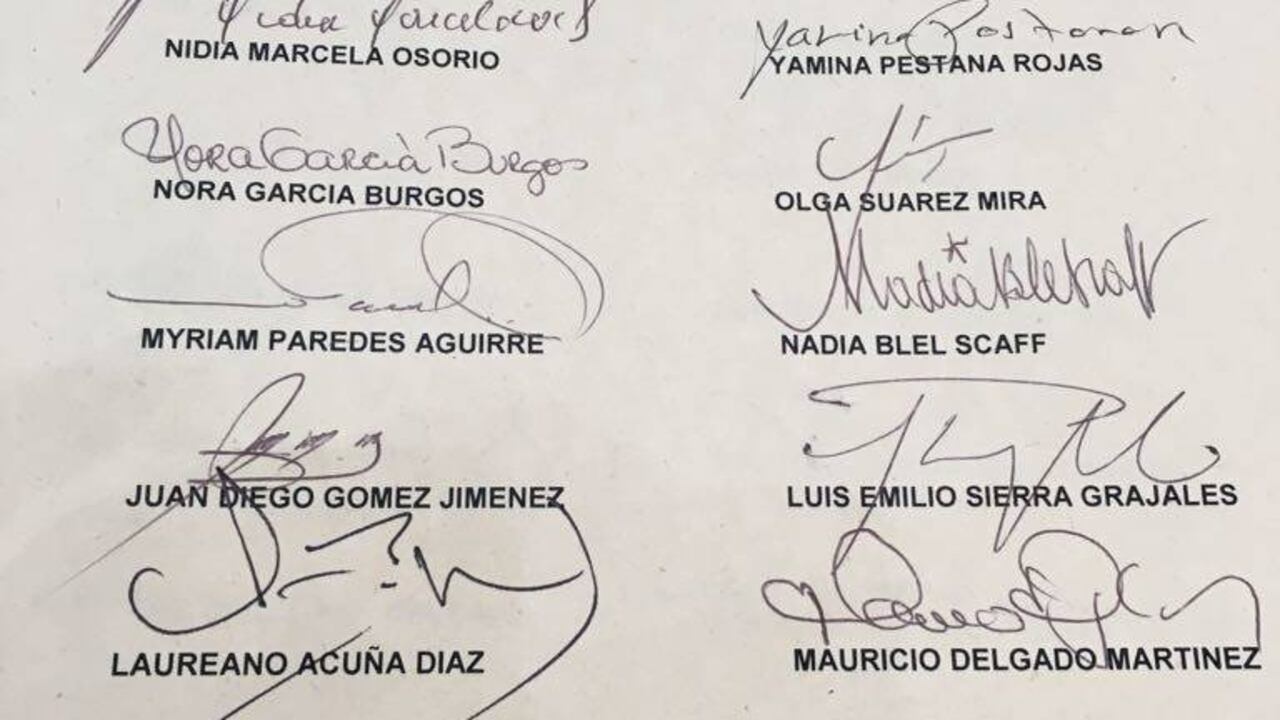 Nidia Marcela Osorio
NIDIA MARCELA OSORIO
Yamina Pestana
YAMINA PESTANA ROJAS
Nora Garcia Burgos
NORA GARCIA BURGOS
OLGA SUAREZ MIRA
MYRIAM PAREDES AGUIRRE
Nadia Blel Scaff
NADIA BLEL SCAFF
JUAN DIEGO GOMEZ JIMENEZ
LUIS EMILIO SIERRA GRAJALES
LAUREANO ACUÑA DIAZ
MAURICIO DELGADO MARTINEZ